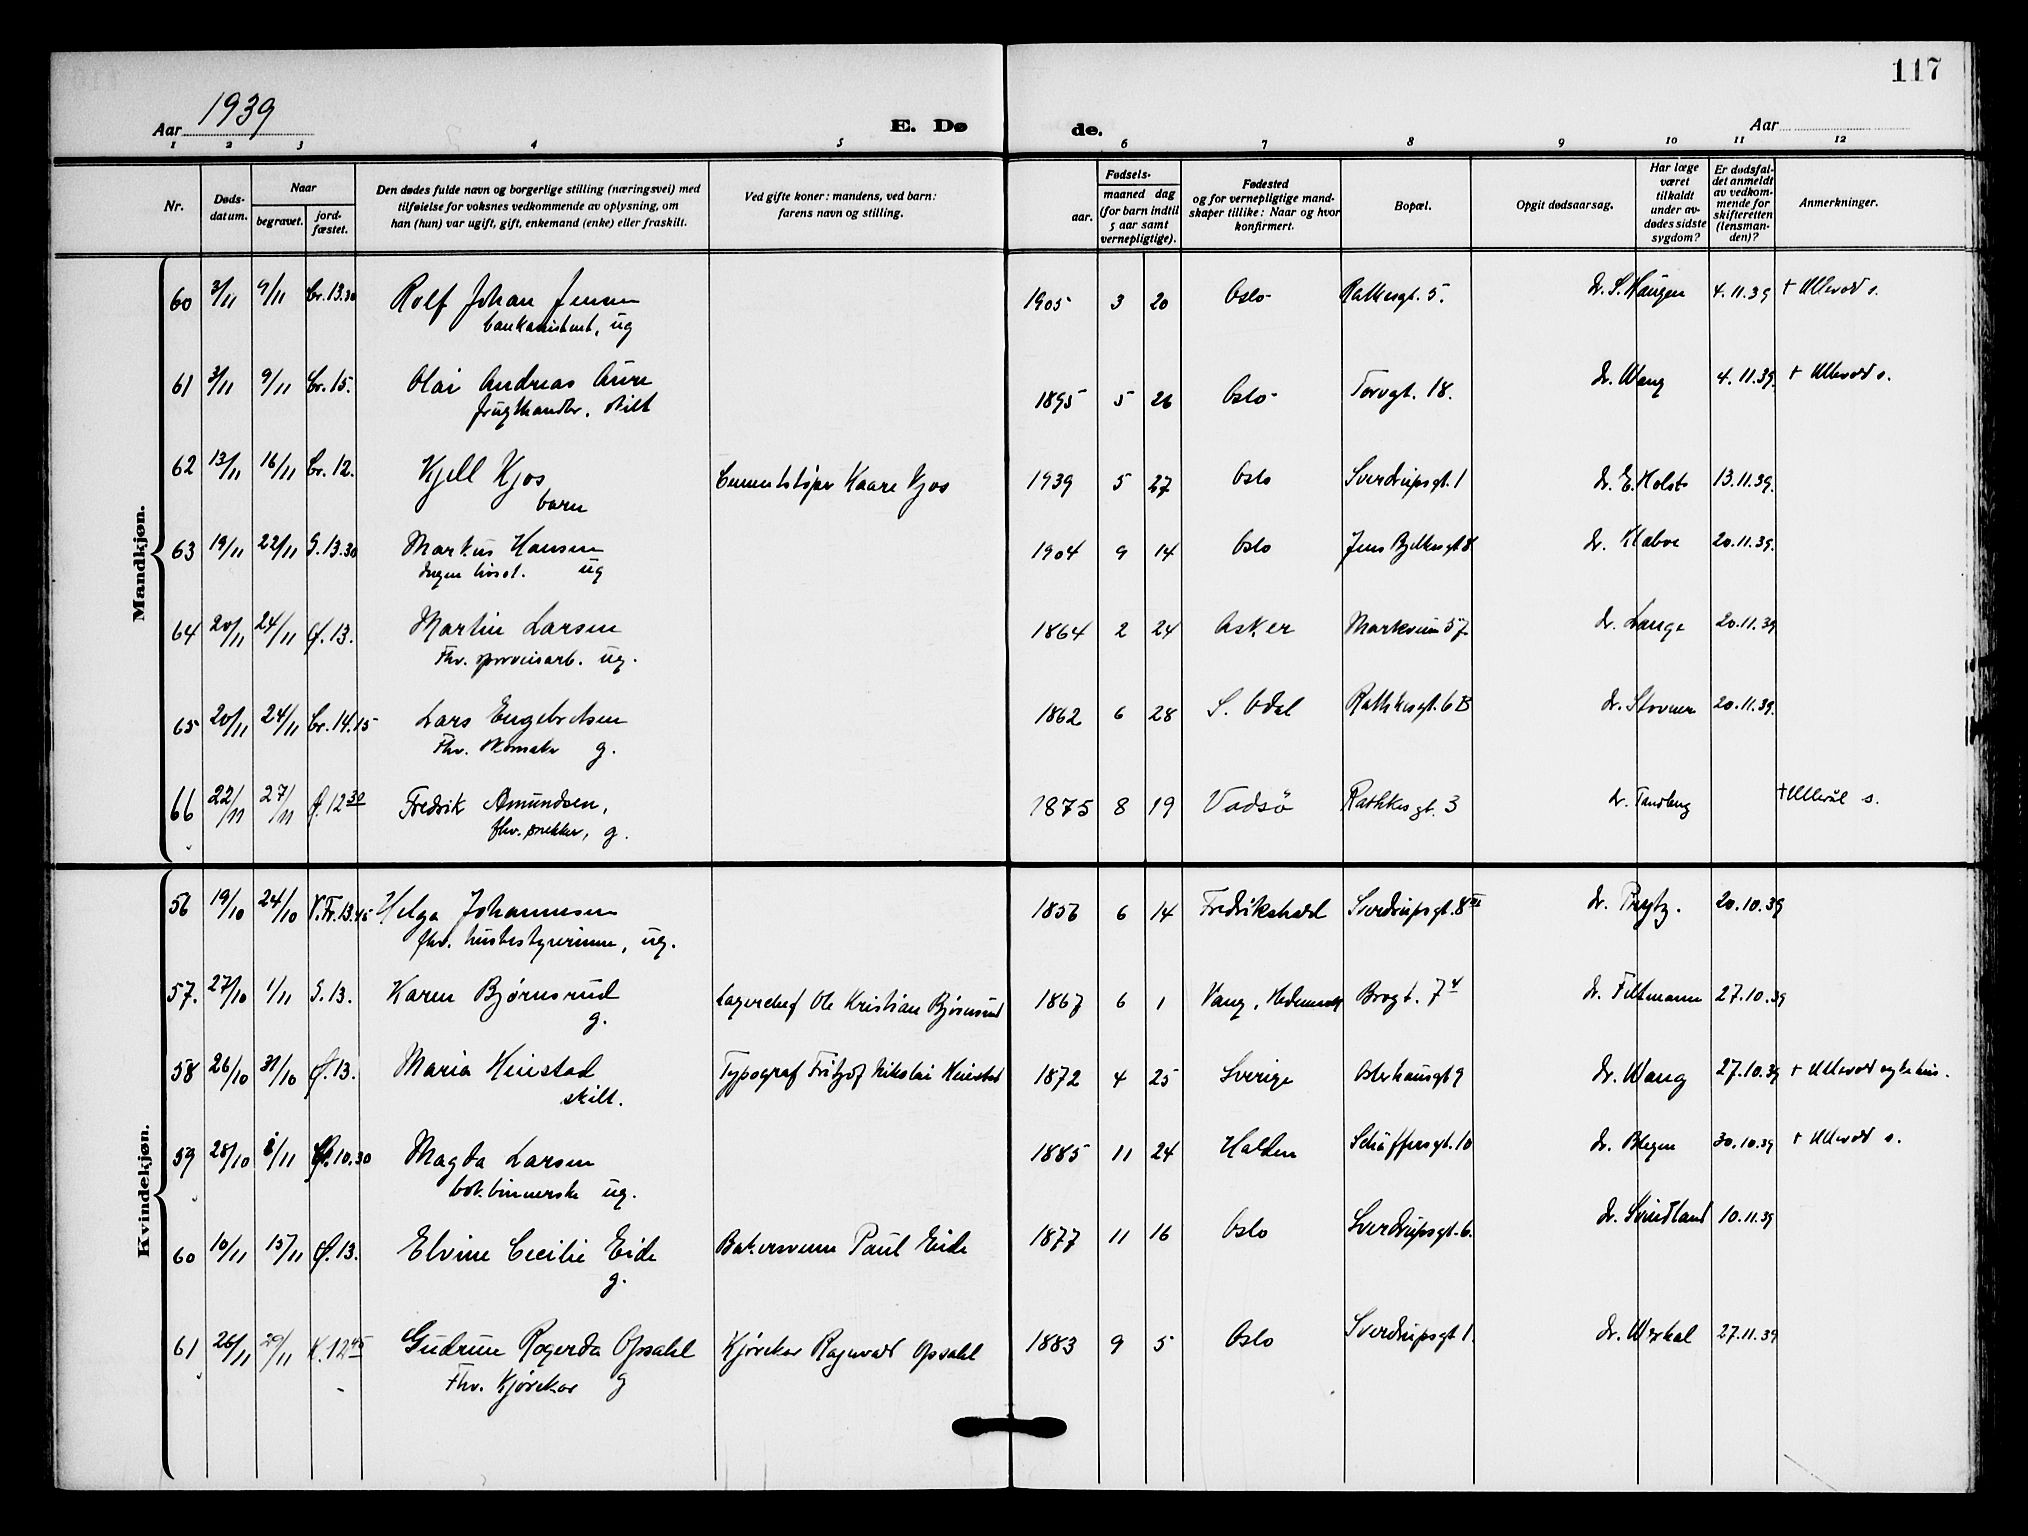 117
Aar 1939 E. Dø de. Aar
1 2 3 4 5 6 7 8 9 10 11 12
Nr.
Døds-
datum.
Naar
begravet.
jord-
fæstet.
Den dødes fulde navn og borgerlige stilling (næringsvei) med
tilføielse for voksnes vedkommende av oplysning, om
han (hun) var ugift, gift, enkemand (enke) eller fraskilt.
Ved gifte koner: mandens, ved barn:
farens navn og stilling.
Fødsels-
aar.
maaned dag
(for barn indtil
5 aar samt
vernepligtige).
Fødested
og for vernepligtige mand-
skaper tillike: Naar og hvor
konfirmert.
Bopæl.
Opgit dødsaarsag.
Har læge
været
tilkaldt
under av-
dødes sidste
sygdom?
Er dødsfal-
det anmeldt
av vedkom-
mende for
skifteretten
(lensman-
den)?
Anmerkninger.
Mandkjøn.
60 3/11 9/11 Cr. 13.30 Rolf Johan Jensen 1905 3 20 Oslo Rathkesgt. 5. Dr. S. Haugen 4.11.39 + Ullevål s.
bankassistent, ug
61 3/11 9/11 Cr. 15. Olai Andreas Aure 1895 5 26 Oslo Torvgt. 18. Dr. Wang 4.11.39. + Ullevål s.
frugthandler, skilt
62 13/11 16/11 Cr. 12. Kjell Kjos Cementstøper Kaare Kjos 1939 5 27 Oslo Sverdrupsgt. 1 Dr. E. Holst 13.11.39.
barn
63 19/11 22/11 G. 13.30 Markus Hansen 1904 9 14 Oslo Jens Bjelkesgt 8 Dr. Klabo 20.11.39.
Ingen livsst. ug
64 20/11 24/11 Ø. 13. Martin Larsen 1864 2 24 Asker Markveien 57 Dr. Lange 20.11.39
Fhv. sporveisarb. ug.
65 20/11 24/11 Cr. 14.15 Lars Engebretsen 1862 6 28 S. Odal Rathkesgt. 6 B Dr. Stovner 20.11.39.
Fhv. skomaker g.
66 22/11 27/11 Ø. 12 30 Fredrik Amundsen, 1875 8 19 Vadsø Rathkesgt. 3 Dr. Tandberg + Ullevål s.
fhv. snekker, g.
Kvindekjøn.
56 19/10 24/10 V.Fr. 13.45 Helga Johannesen 1856 6 14 Fredrikshald Sverdrupsgt. 8 III Dr. Prytz. 20.10.39
fhv. husbestyrerinne, ug.
57. 27/10 1/11 G. 13. Karen Bjørnsrud Lagerchef Ole Kristian Bjørnsrud 1867 6 1 Vang, Hedmark Brogt. 7 4 Dr. Feltmann 27.10.39
g.
58 26/10 31/10 Ø. 13. Maria Heiestad Typograf Fritjof Nikolai Heiestad 1872 4 25 Sverige Osterhausgt 9 Dr. Wang 27.10.39 + Ullevål sykehus.
skilt.
59 28/10 /11 10.30 Magda Larsen 1885 11 24 Halden Schäffersgt. 10 Dr. Blegen 30.10.39 + Ullevål s.
bokbinnerske ug.
60 10/11 15/11 Ø. 13. Elvine Cecilie Eide Bakersvenn Paul Eide 1877 11 16 Oslo Sverdrupsgt. 6. Dr. Svindland 10.11.39
g.
61 26/11 29/11 K. 12 45 Gudrun Rogerda Opsahl Kjørekar Ragnvald Opsahl 1883 9 5 Oslo Sverdrupsgt 1. Dr. 27.11.39
Fhv. Kjørekar g